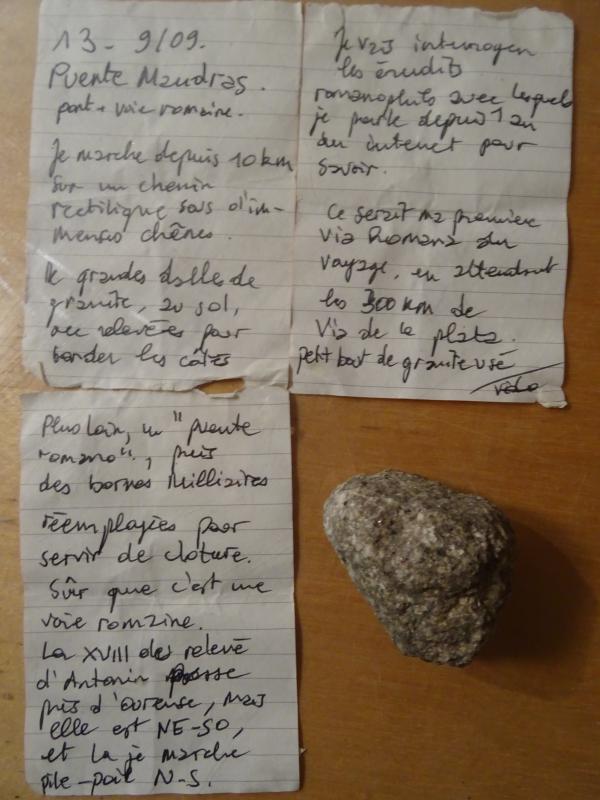 13 - 9/09.
Puente Mandras.
pont + voie romaine.
Je marche depuis 10 km
sur un chemin
rectiligne sous d'im-
menses chênes.
De grandes dalles de
granite, au sol,
avec relevées pour
border les côtés
Plus loin, un "puente
romano", puis
des bornes milliaires
réemployées pour
servir de cloture.
Sûr que c'est une
voie romaine.
La XVIII du relevé
d'Antonin passe
près d'Ourense, mais
elle est NE-SO,
et là je marche
pile-poil N-S.
Je vais interroger
les érudits
romanophiles avec lesquels
je parle depuis 1 an
sur internet pour
savoir.
Ce serait ma première
Via Romana du
voyage, en attendant
les 300 km de
Via de la plata.
petit bout de granite usé